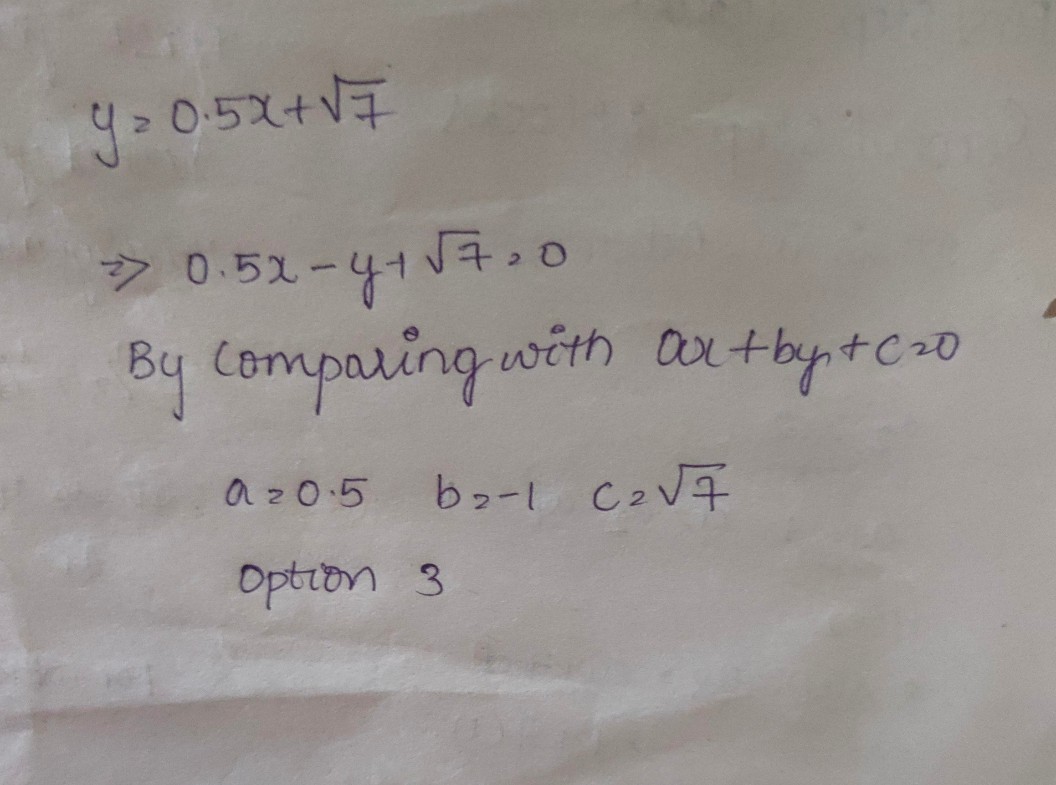 y = 0.5x + √7
⇒ 0.5x - y + √7 = 0
By Comparing with ax + by + c = 0
a = 0.5 b = -1 c = √7
Option 3